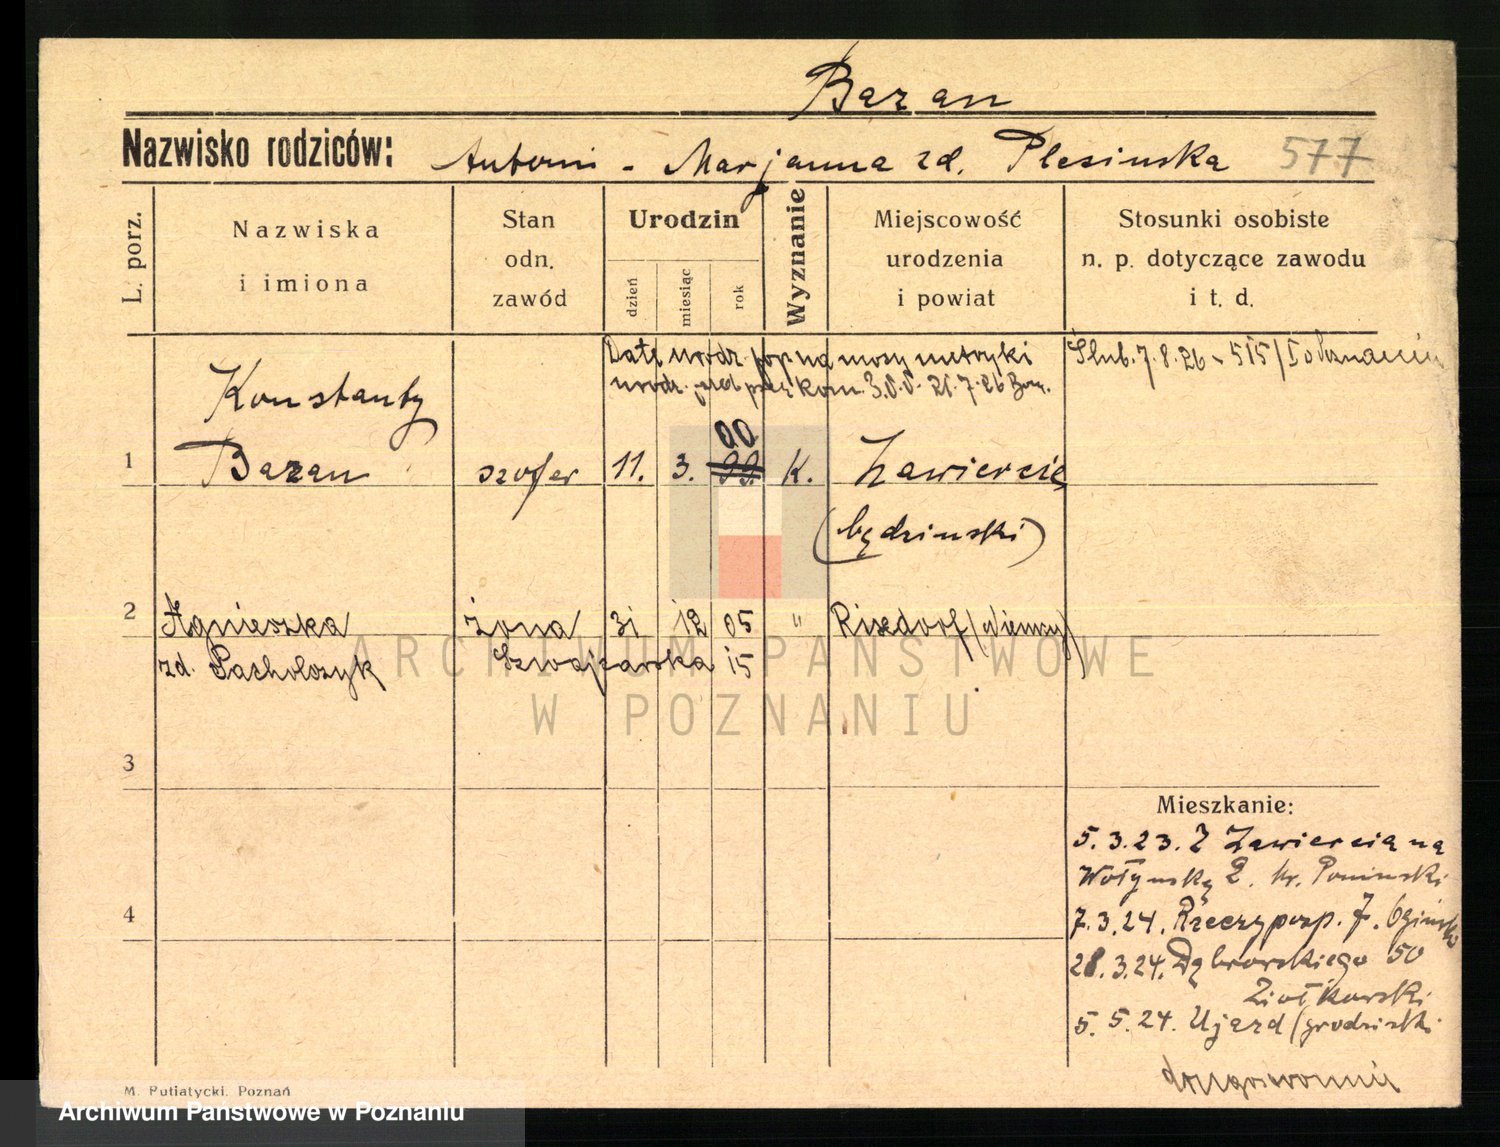 Bazan
Nazwisko rodziców: Antoni - Marjanna zd. Plesinska 577
L. porz.
Nazwiska i imiona
Stan odn. zawód
Urodzin
dzień
miesiąc
rok
Wyznanie
Miejscowość urodzenia i powiat
Stosunki osobiste n. p. dotyczące zawodu i t. d.
Datę urodz. pop. na mocy metryki
urodz. przez kom. 21.7.26
Ślub. 7.8.26 - 515/I Poznaniu
Konstanty
1 Bazan szofer 11. 3. 99. 00 K. Zawiercie
(będzinski)
2 Agnieszka żona 31 12 05 " Risedorf (Niemcy)
zd. Pacholczyk Szwajcarska 15
3
4
Mieszkanie:
5.3.23. Z Zawiercia na
Wołynską 2. Poninski
7.3.24. Rzeczyposp. 7. Ogiński
28.3.24. Dąbrowskiego 50
Ziołkowski
5.5.24. Ujazd (grodziski
M. Putiatycki, Poznań
ARCHIWUM PAŃSTWOWE
W POZNANIU
Archiwum Państwowe w Poznaniu